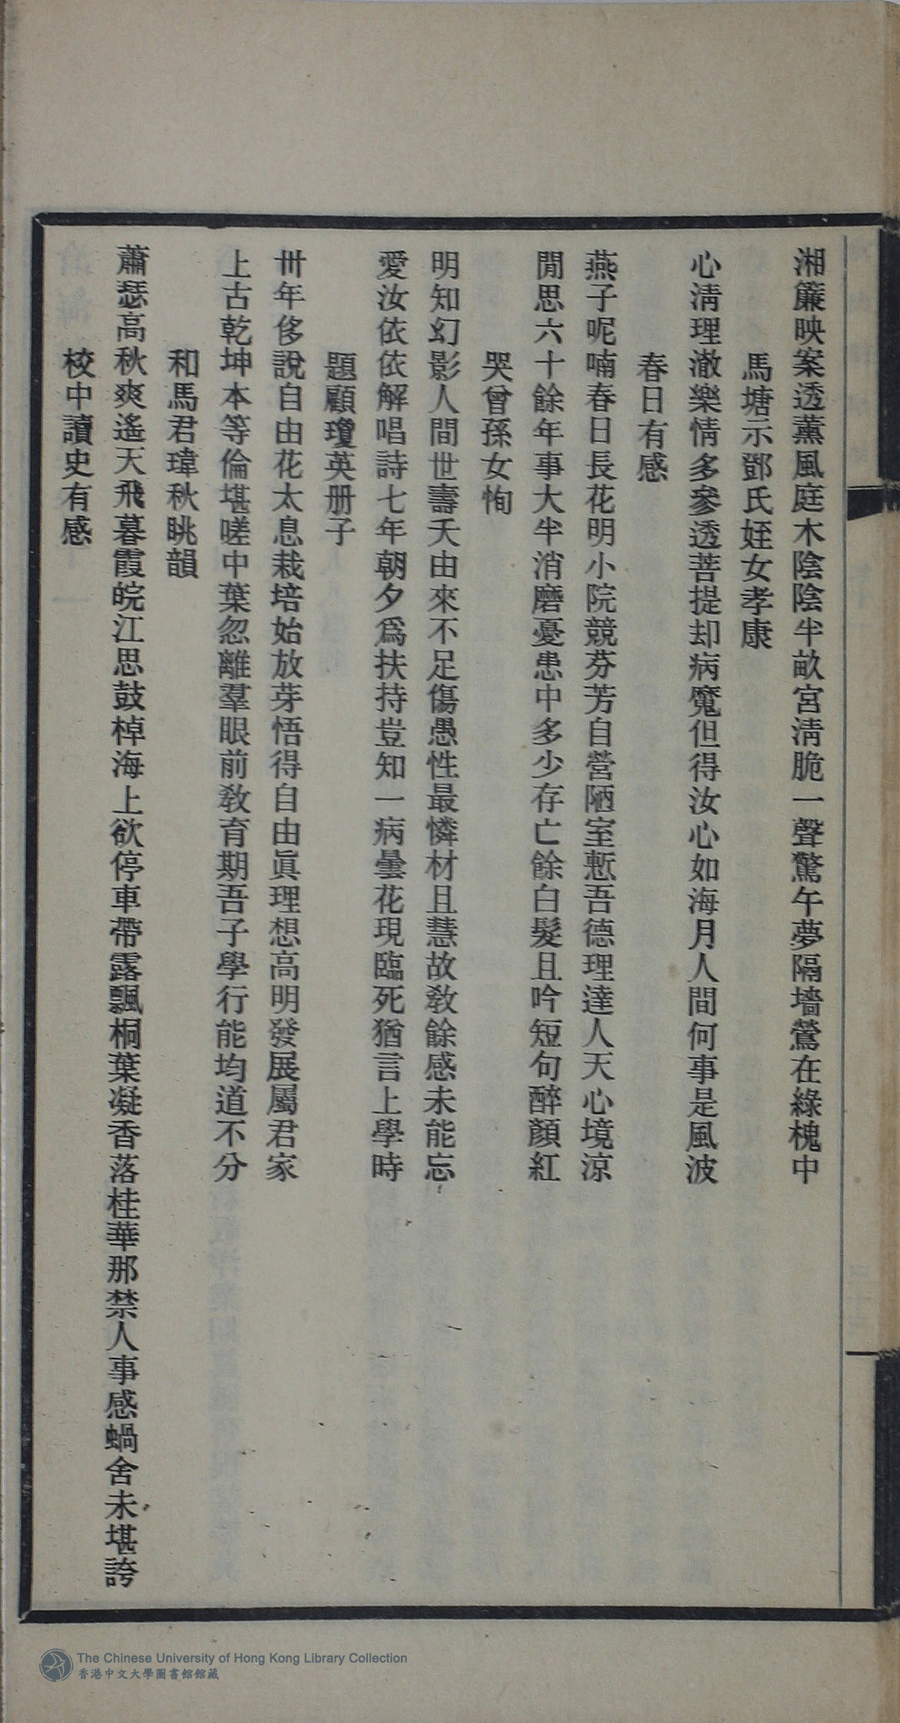 湘簾映案透薰風庭木陰陰半畝宮淸脆一聲驚午夢隔墻鶯在綠槐中
馬塘示鄧氏姪女孝康
心淸理澈樂情多參透菩提却病魔但得汝心如海月人間何事是風波
春日有感
燕子呢喃春日長花明小院競芬芳自營陋室慙吾德理達人天心境涼
閒思六十餘年事大半消磨憂患中多少存亡餘白髮且吟短句醉顏紅
哭曾孫女恂
明知幻影人間世壽夭由來不足傷愚性最憐材且慧故敎餘感未能忘
愛汝依依解唱詩七年朝夕爲扶持豈知一病曇花現臨死猶言上學時
題顧瓊英册子
卅年侈說自由花太息栽培始放芽悟得自由眞理想高明發展屬君家
上古乾坤本等倫堪嗟中葉忽離羣眼前敎育期吾子學行能均道不分
和馬君瑋秋眺韻
蕭瑟高秋爽遙天飛暮霞皖江思鼓棹海上欲停車帶露飄桐葉凝香落桂華那禁人事感蝸舍未堪誇
校中讀史有感
The Chinese University of Hong Kong Library Collection
香港中文大學圖書館館藏